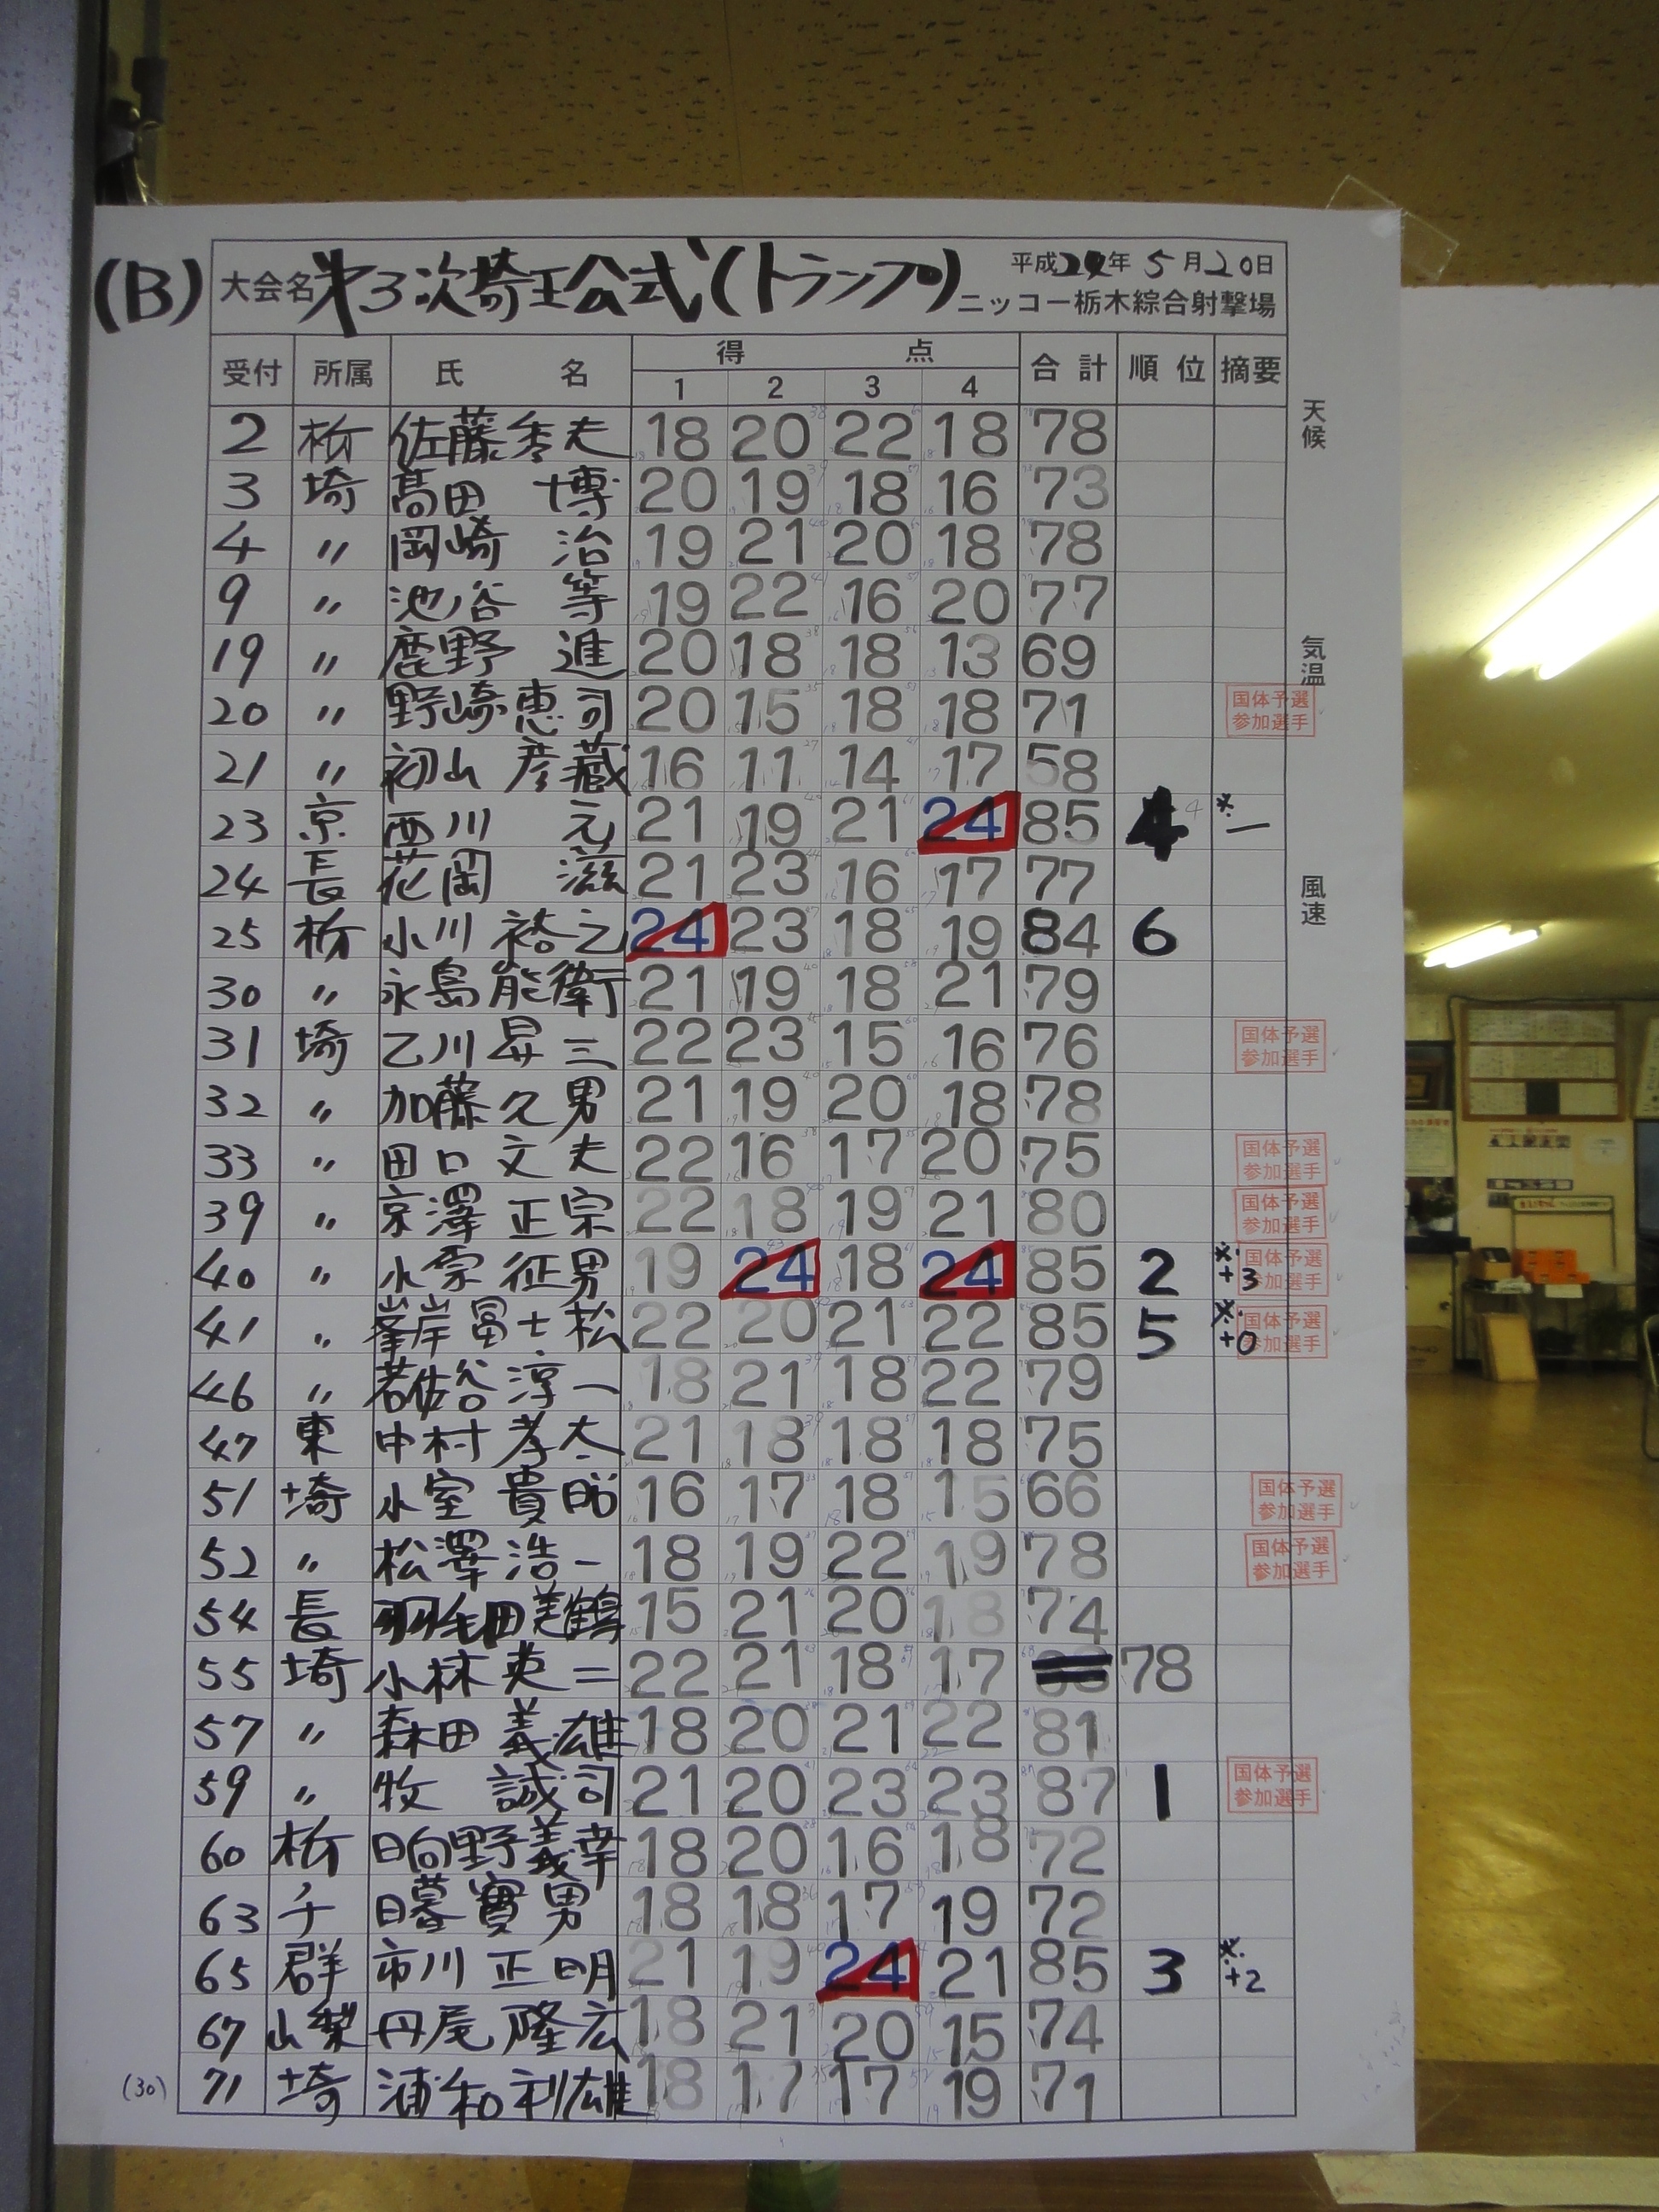 (B) 大会名 第3次埼玉公式(トランプ) 平成24年5月20日
ニッコー栃木綜合射撃場
受付 所属 氏名 得点 合計 順位 摘要
1 2 3 4
天候
気温
風速
2 栃 佐藤秀夫 18 20 22 18 78
3 埼 髙田 博 20 19 18 16 73
4 〃 岡崎 治 19 21 20 18 78
9 〃 池谷 等 19 22 16 20 77
19 〃 鹿野 進 20 18 18 13 69
20 〃 野崎恵司 20 15 18 18 71 国体予選参加選手
21 〃 初山彦藏 16 11 14 17 58
23 京 西川 元 21 19 21 24 85 4 4 ※ー
24 長 花岡 滋 21 23 16 17 77
25 栃 小川裕之 24 23 18 19 84 6
30 〃 永島能衛 21 19 18 21 79
31 埼 乙川昇三 22 23 15 16 76 国体予選参加選手
32 〃 加藤久男 21 19 20 18 78
33 〃 田口文夫 22 16 17 20 75 国体予選参加選手
39 〃 京澤正宗 22 18 19 21 80 国体予選参加選手
40 〃 小 征男 19 24 18 24 85 2 ※+3 国体予選参加選手
41 〃 峯岸冨士松 22 20 21 22 85 5 ※+0 国体予選参加選手
46 〃 若佐谷淳一 18 21 18 22 79
47 東 中村孝太 21 18 18 18 75
51 埼 小室貴昭 16 17 18 15 66 国体予選参加選手
52 〃 松澤浩一 18 19 22 19 78 国体予選参加選手
54 長 羽毛田美鶴 15 21 20 18 74
55 埼 小林英二 22 21 18 17 78
57 〃 森田義雄 18 20 21 22 81
59 〃 牧 誠司 21 20 23 23 87 1 国体予選参加選手
60 栃 日向野義幸 18 20 16 18 72
63 千 日暮實男 18 18 17 19 72
65 群 市川正明 21 19 24 21 85 3 ※+2
67 山梨 丹尾隆広 18 21 20 15 74
(30) 71 埼 浦和利雄 18 17 17 19 71